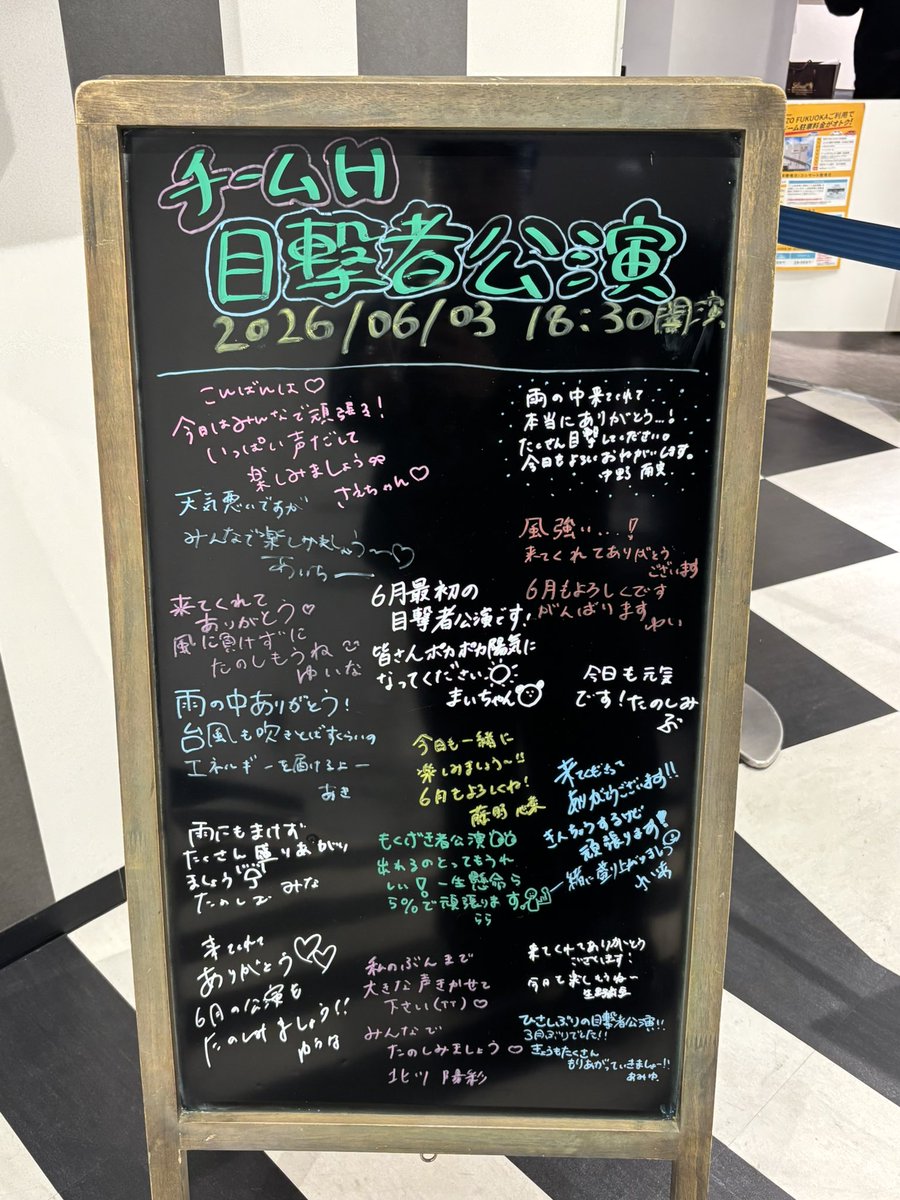 チームH
目撃者公演
2026/06/03 18:30開演
こんばんは♡
今日はみんなで頑張る!
いっぱい声だして
楽しみましょう
さえちゃん♡
天気悪いですが
みんなで楽しみましょう〜♡
あいちー
来てくれて
ありがとう♡
風に負けずに
たのしもうね
ゆいな
雨の中ありがとう!
台風も吹きとばすくらいの
エネルギーを届けるよー
あき
雨にもまけず
たくさん盛りあがり
ましょう
たのしで みな
来てくれて
ありがとう
6月の公演も
たのしみましょう!!
雨の中来てくれて
本当にありがとう…!
たくさん目撃してください。
今日もよろしくおねがいします。
中野
風強い…!
来てくれてありがとう
ございます
6月もよろしくです
がんばります
ゆい
6月最初の
目撃者公演です!
皆さんポカポカ陽気に
なってください
まいちゃん
今日も元気
です!たのしみ
ぶ
今日も一緒に
楽しみましょう〜!!
6月もよろしくね!
来てくださって
ありがとうございます!!
きんちょうするけど
頑張ります!
一緒に盛り上がりましょう
もくげき者公演
出れるのとってもうれ
しい! 一生懸命ら
ら%で頑張ります
らら
私のぶんまで
大きな声きかせて
下さい(TT)♡
みんなで
たのしみましょう♡
北ツ 陽彩
来てくれてありがとう
ございます!
今日も楽しもうね〜
ひさしぶりの目撃者公演!!
3月ぶりでした!!
きょうもたくさん
もりあがっていきましょー!!
おみゆ
ZO FUKUOKAご利用で
ーム駐車料金がオトク!